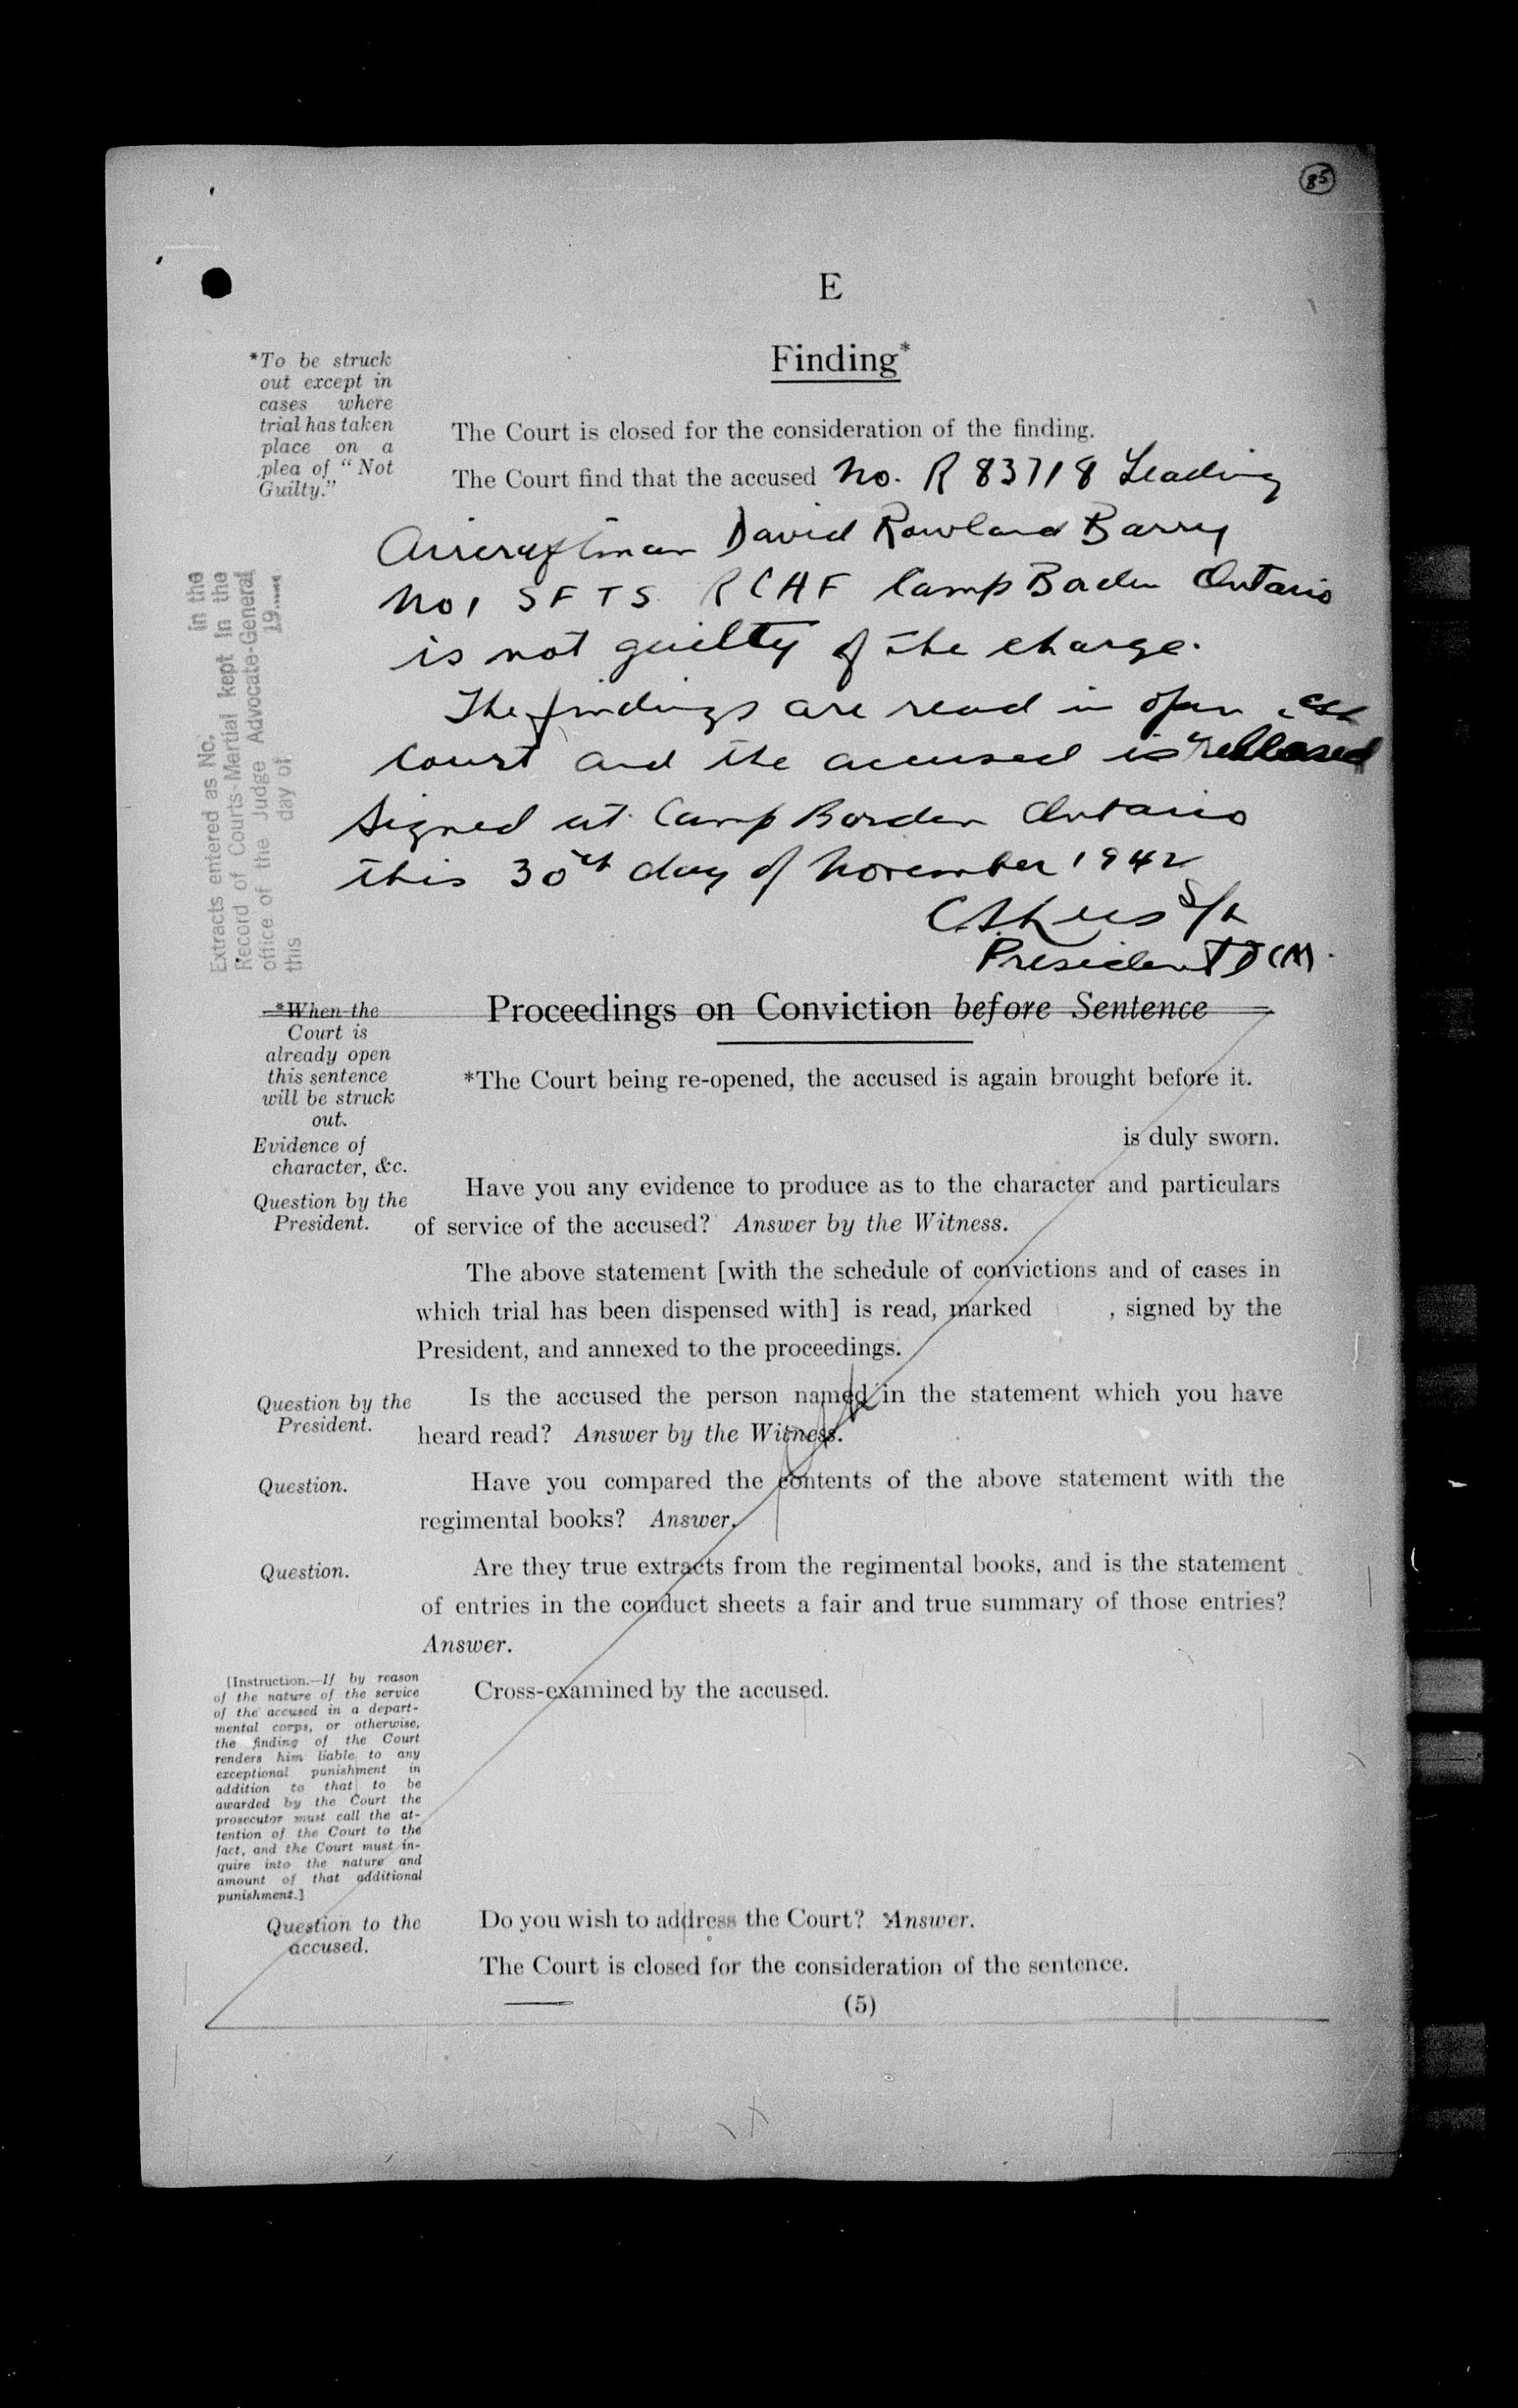 85
E
Finding*
*To be struck
out except in
cases where
trial has taken
place on a
plea of “Not
Guilty.”
The Court is closed for the consideration of the finding.
The Court find that the accused No. R 83718 Leading
Aircraftman David Rowland Barry
No 1 SFTS RCAF Camp Borden Ontario
is not guilty of the charge.
The findings are read in open
Court and the accused is released
Signed at Camp Borden Ontario
this 30th day of November 1942
S/L
President DCM.
Extracts entered as No. in the
Record of Courts-Martial kept in the
office of the Judge Advocate-General
this day of 19
Proceedings on Conviction before Sentence
*When the
Court is
already open
this sentence
will be struck
out.
*The Court being re-opened, the accused is again brought before it.
is duly sworn.
Evidence of
character, &c.
Question by the
President.
Have you any evidence to produce as to the character and particulars
of service of the accused? Answer by the Witness.
The above statement [with the schedule of convictions and of cases in
which trial has been dispensed with] is read, marked , signed by the
President, and annexed to the proceedings.
Question by the
President.
Is the accused the person named in the statement which you have
heard read? Answer by the Witness.
Question.
Have you compared the contents of the above statement with the
regimental books? Answer.
Question.
Are they true extracts from the regimental books, and is the statement
of entries in the conduct sheets a fair and true summary of those entries?
Answer.
[Instruction.—If by reason
of the nature of the service
of the accused in a depart-
mental corps, or otherwise,
the finding of the Court
renders him liable to any
exceptional punishment in
addition to that to be
awarded by the Court the
prosecutor must call the at-
tention of the Court to the
fact, and the Court must in-
quire into the nature and
amount of that additional
punishment.]
Cross-examined by the accused.
Question to the
accused.
Do you wish to address the Court? Answer.
The Court is closed for the consideration of the sentence.
(5)